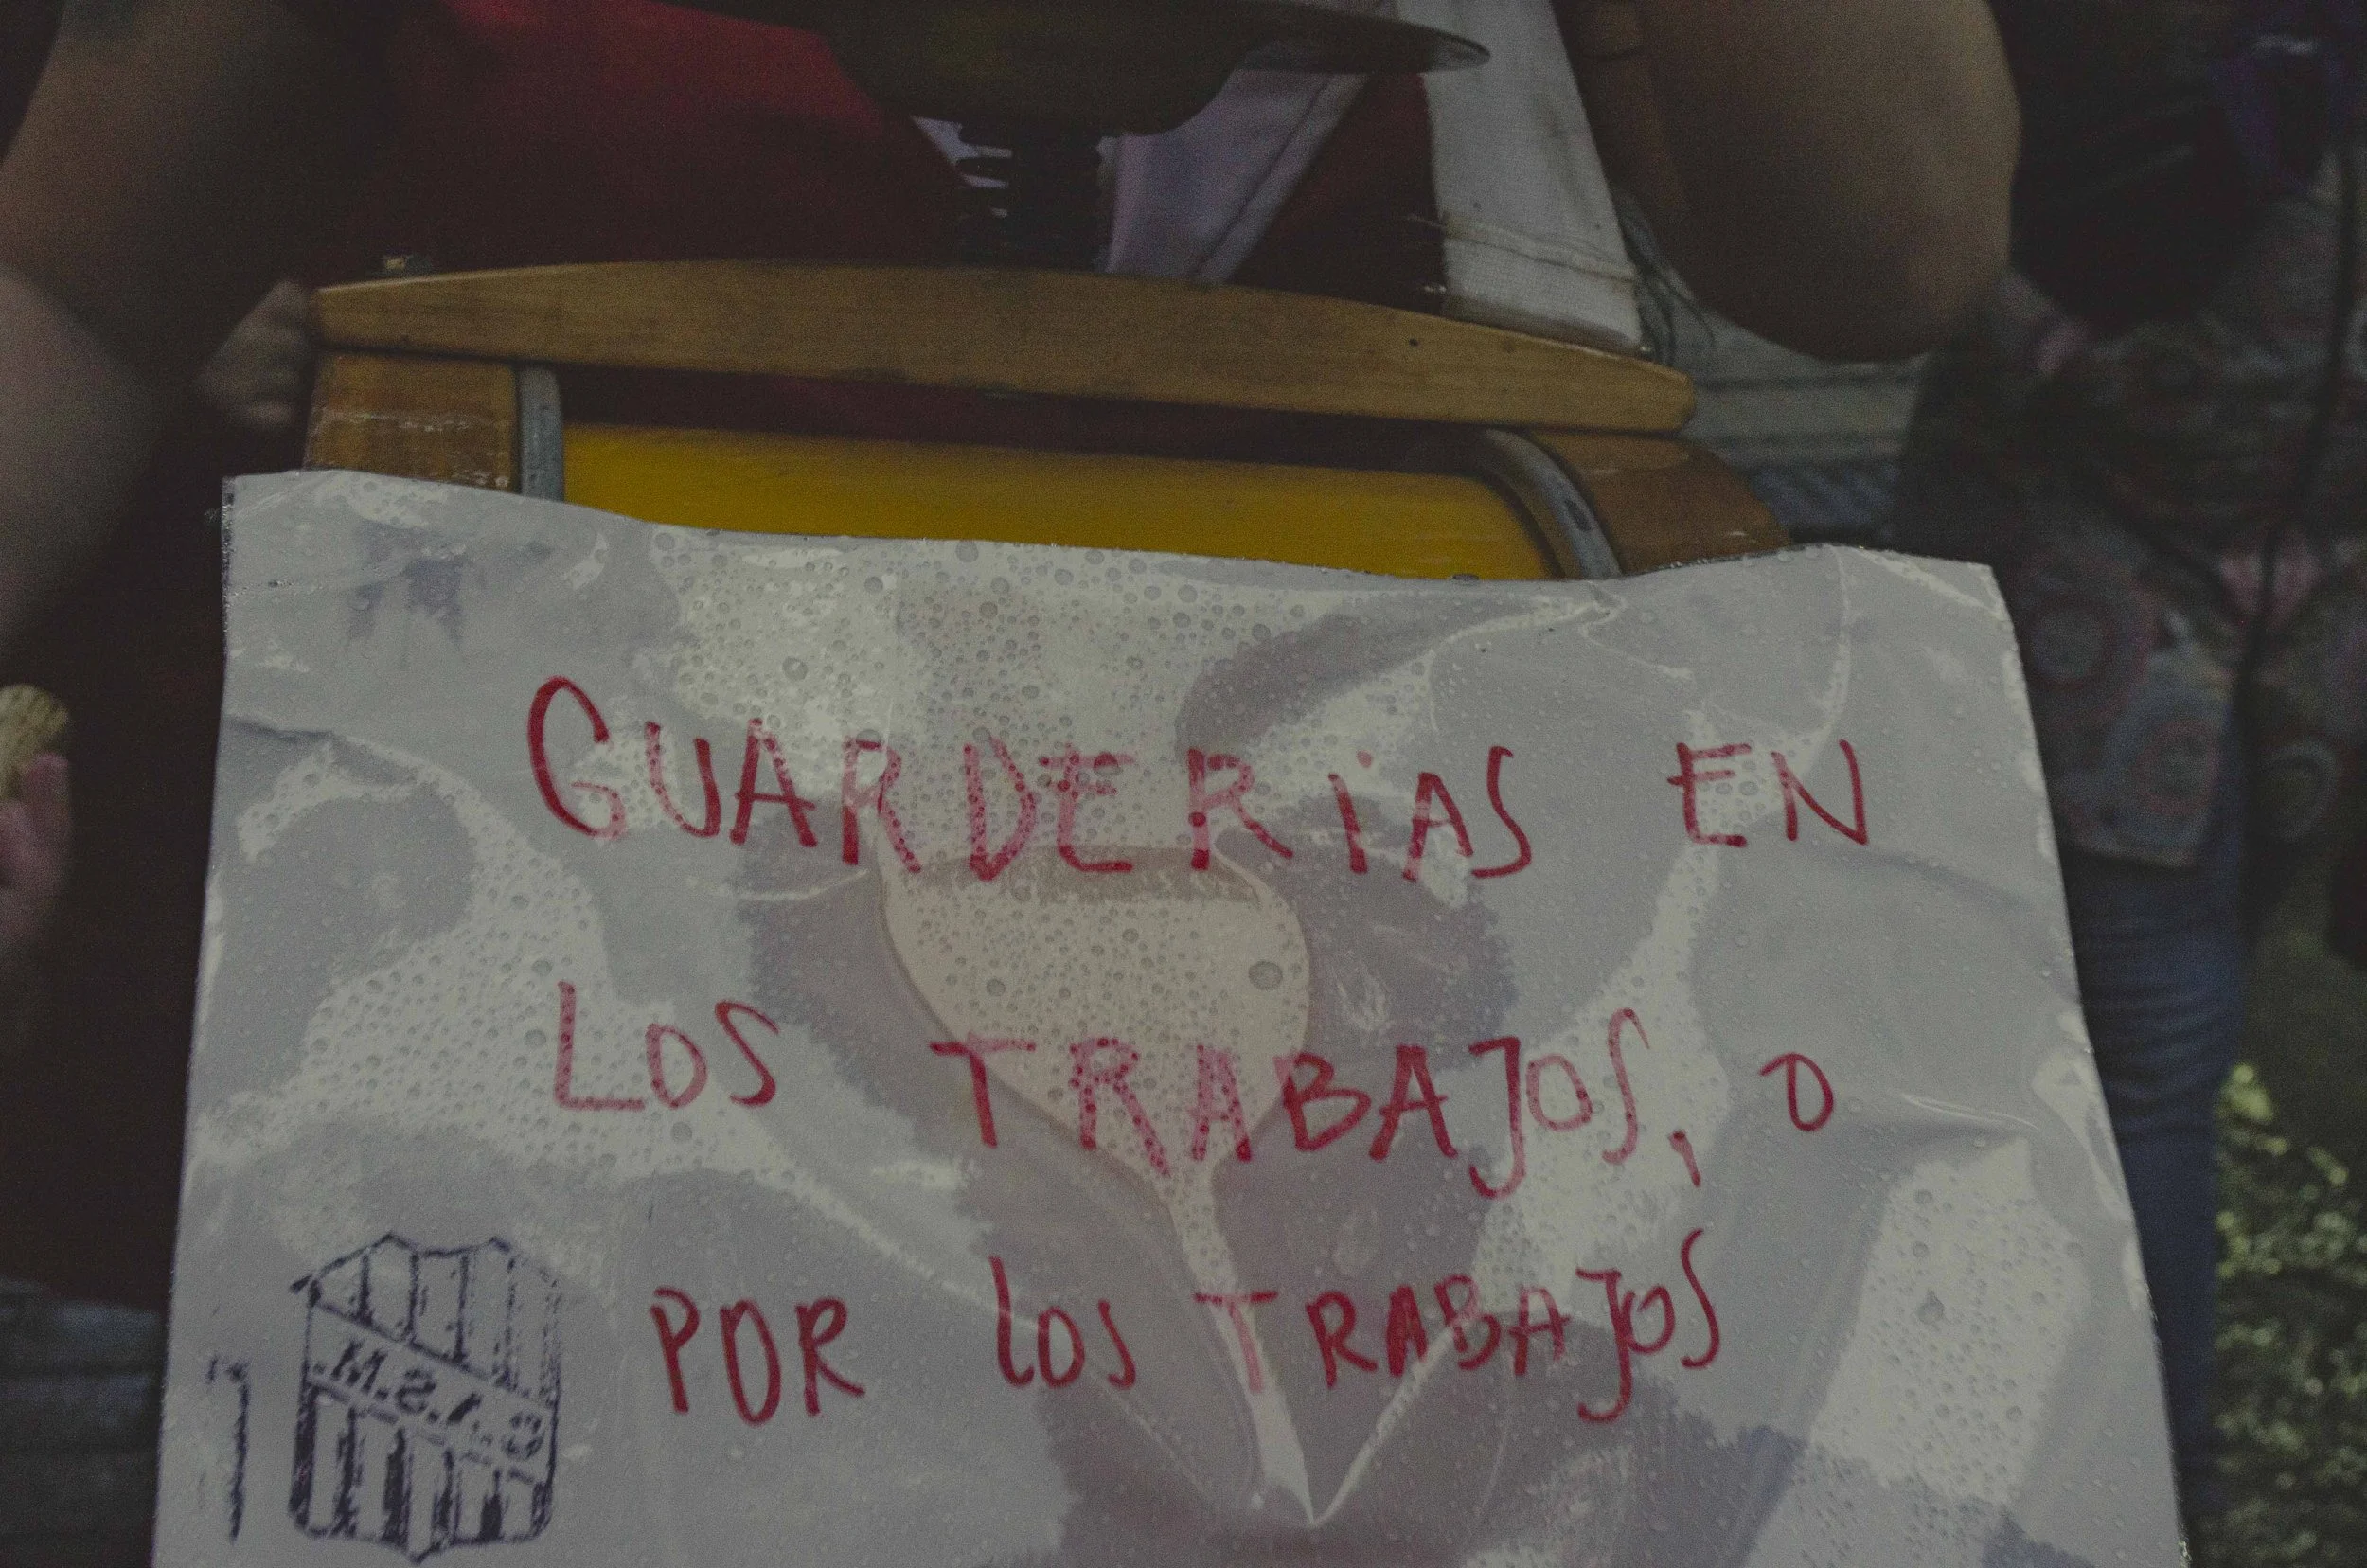 GUARDERiAS EN
LOS TRABAJOS, O
POR los TRABAJOS